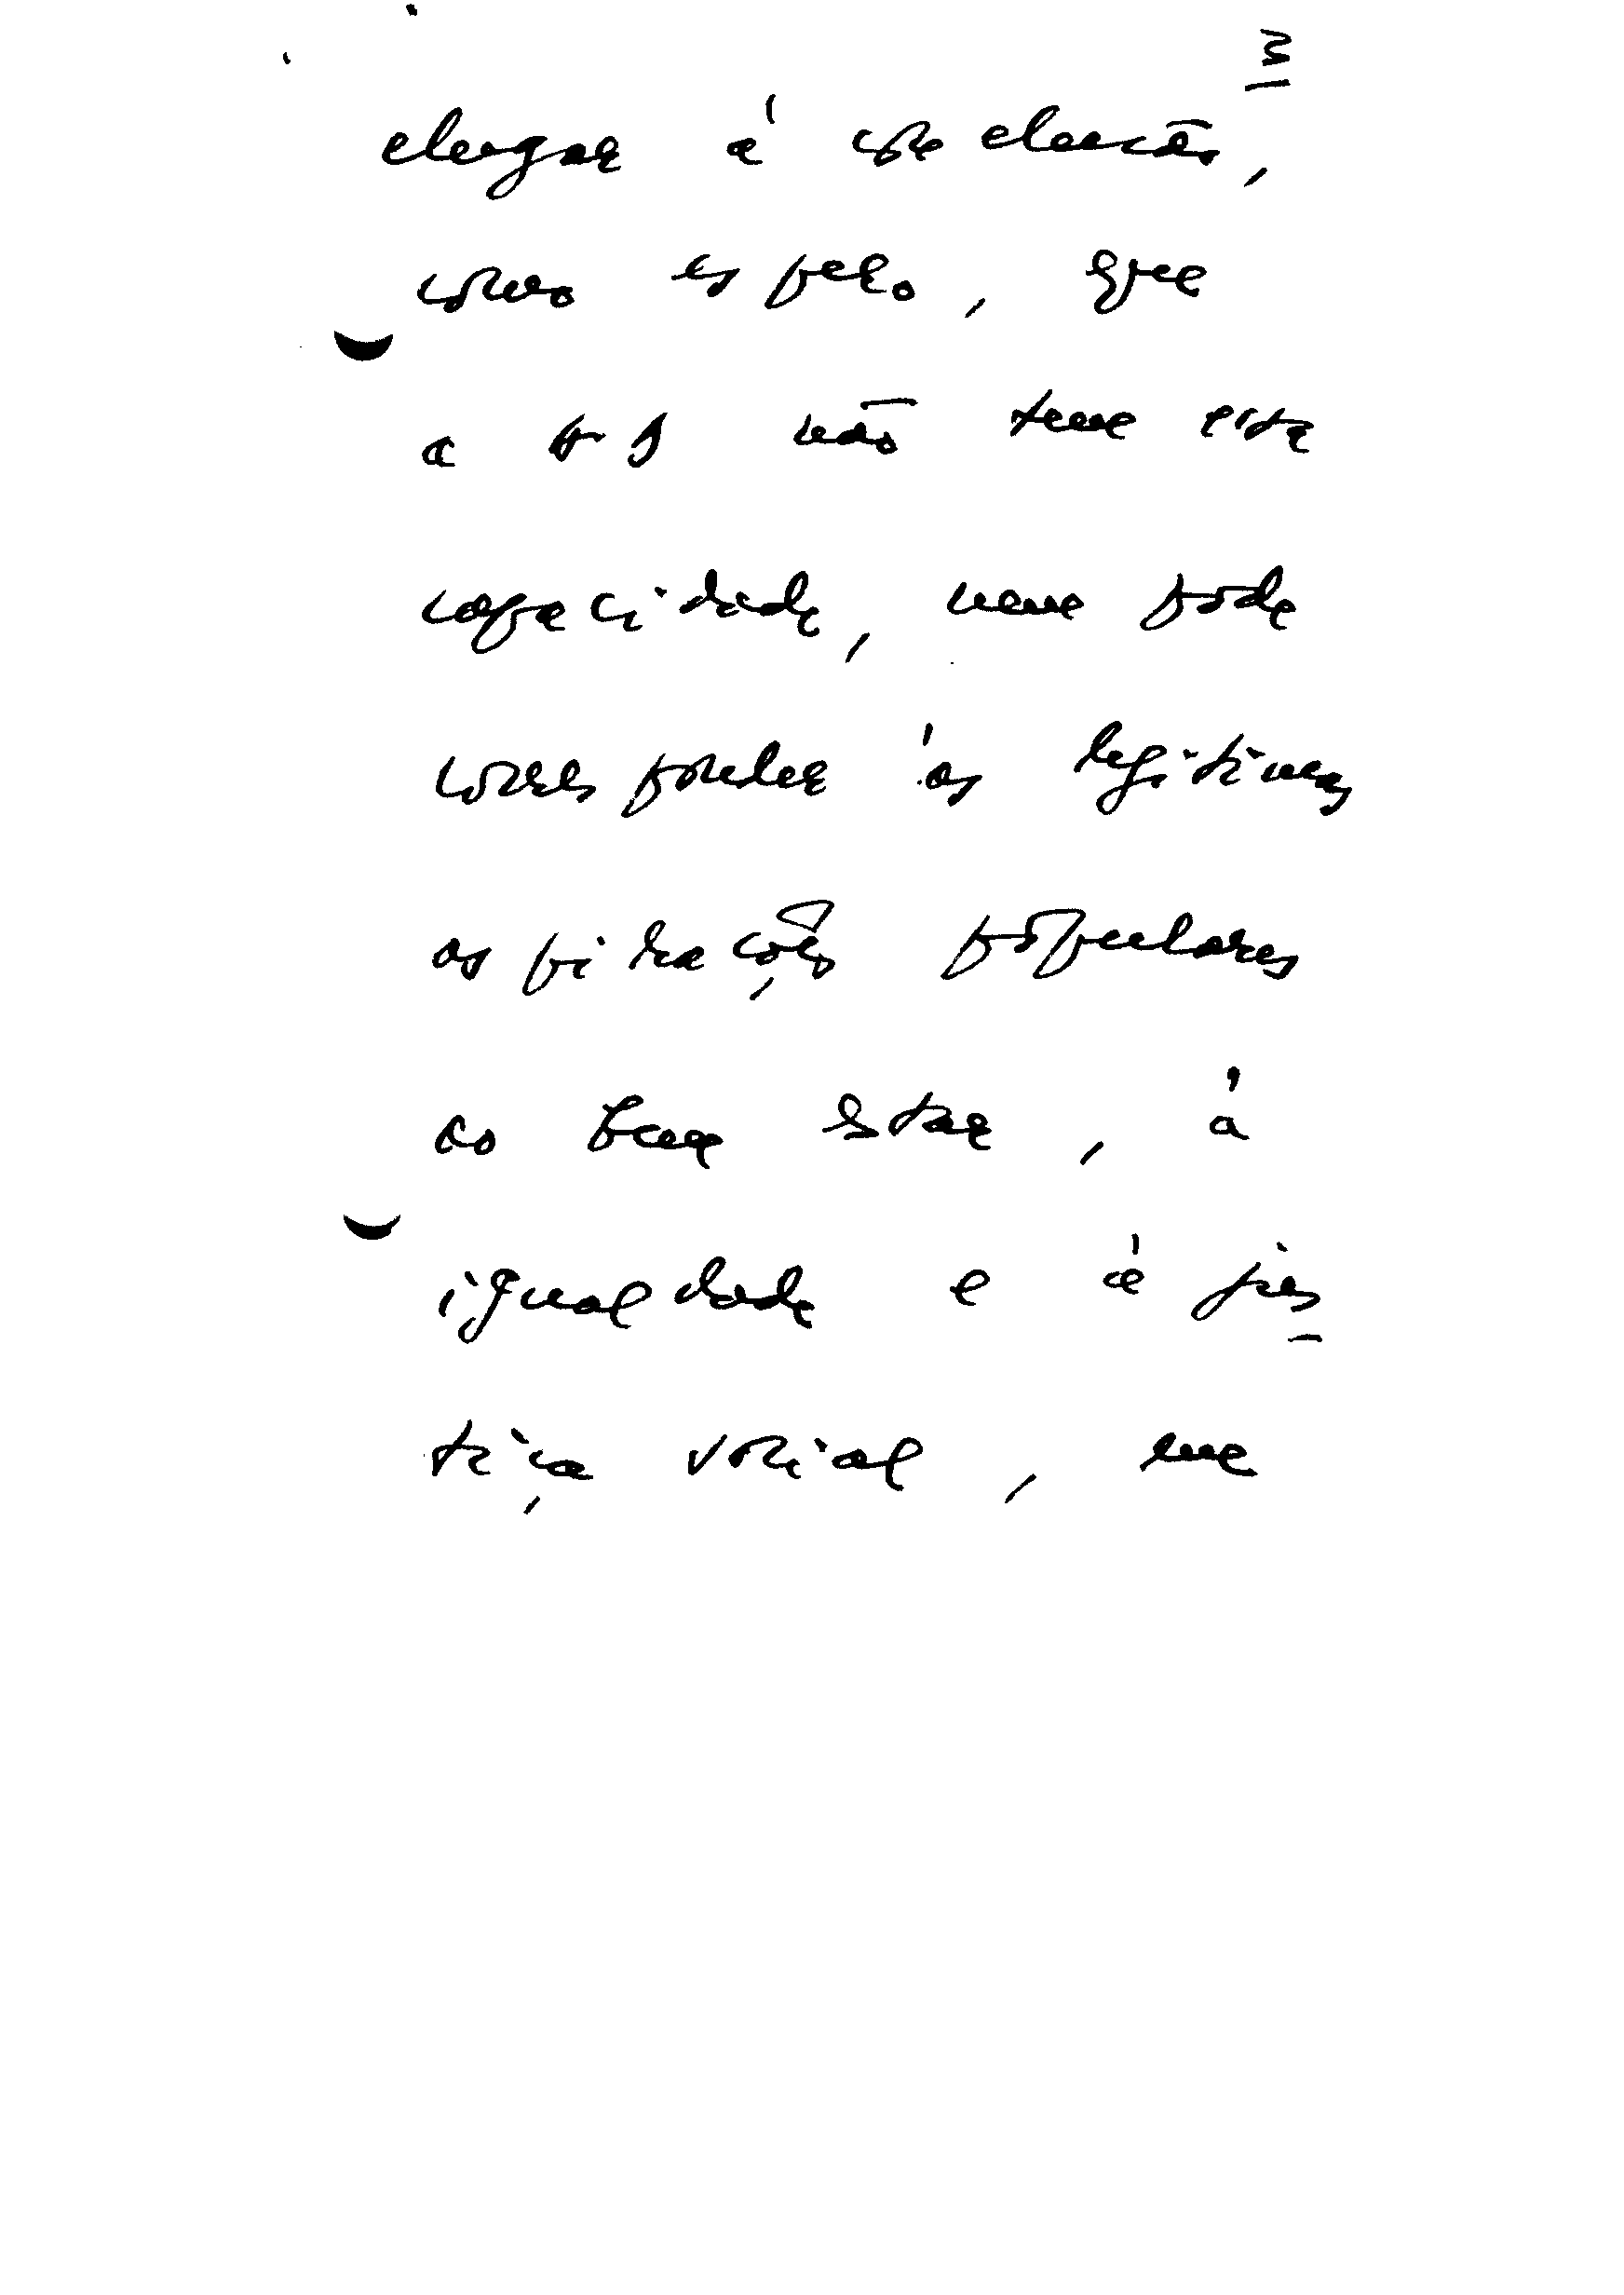 3
chegar à conclusão,
como espero, que
a não tem esta
capacidade, nem pode
corresponder às legítimas
aspirações populares
ao bem estar, à
igualdade e à jus
tiça social, em